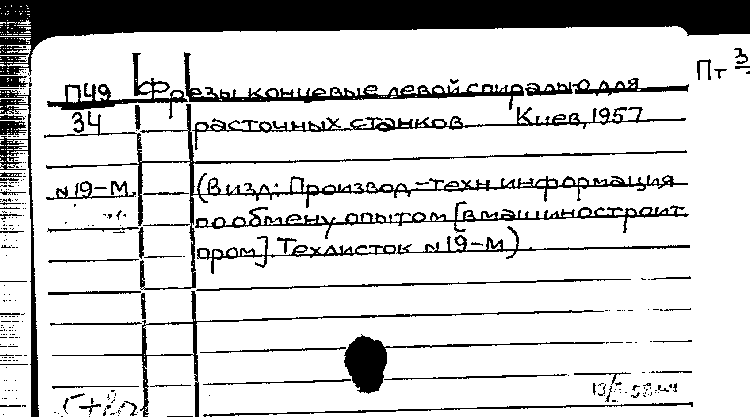 П49 Фрезы концевые левой спиралью для
34 расточных станков Киев, 1957
N19-М. (В изд: Производ-техн информация
по обмену опытом [в машиностроит.
пром]. Техлисток N19-М).
Пт